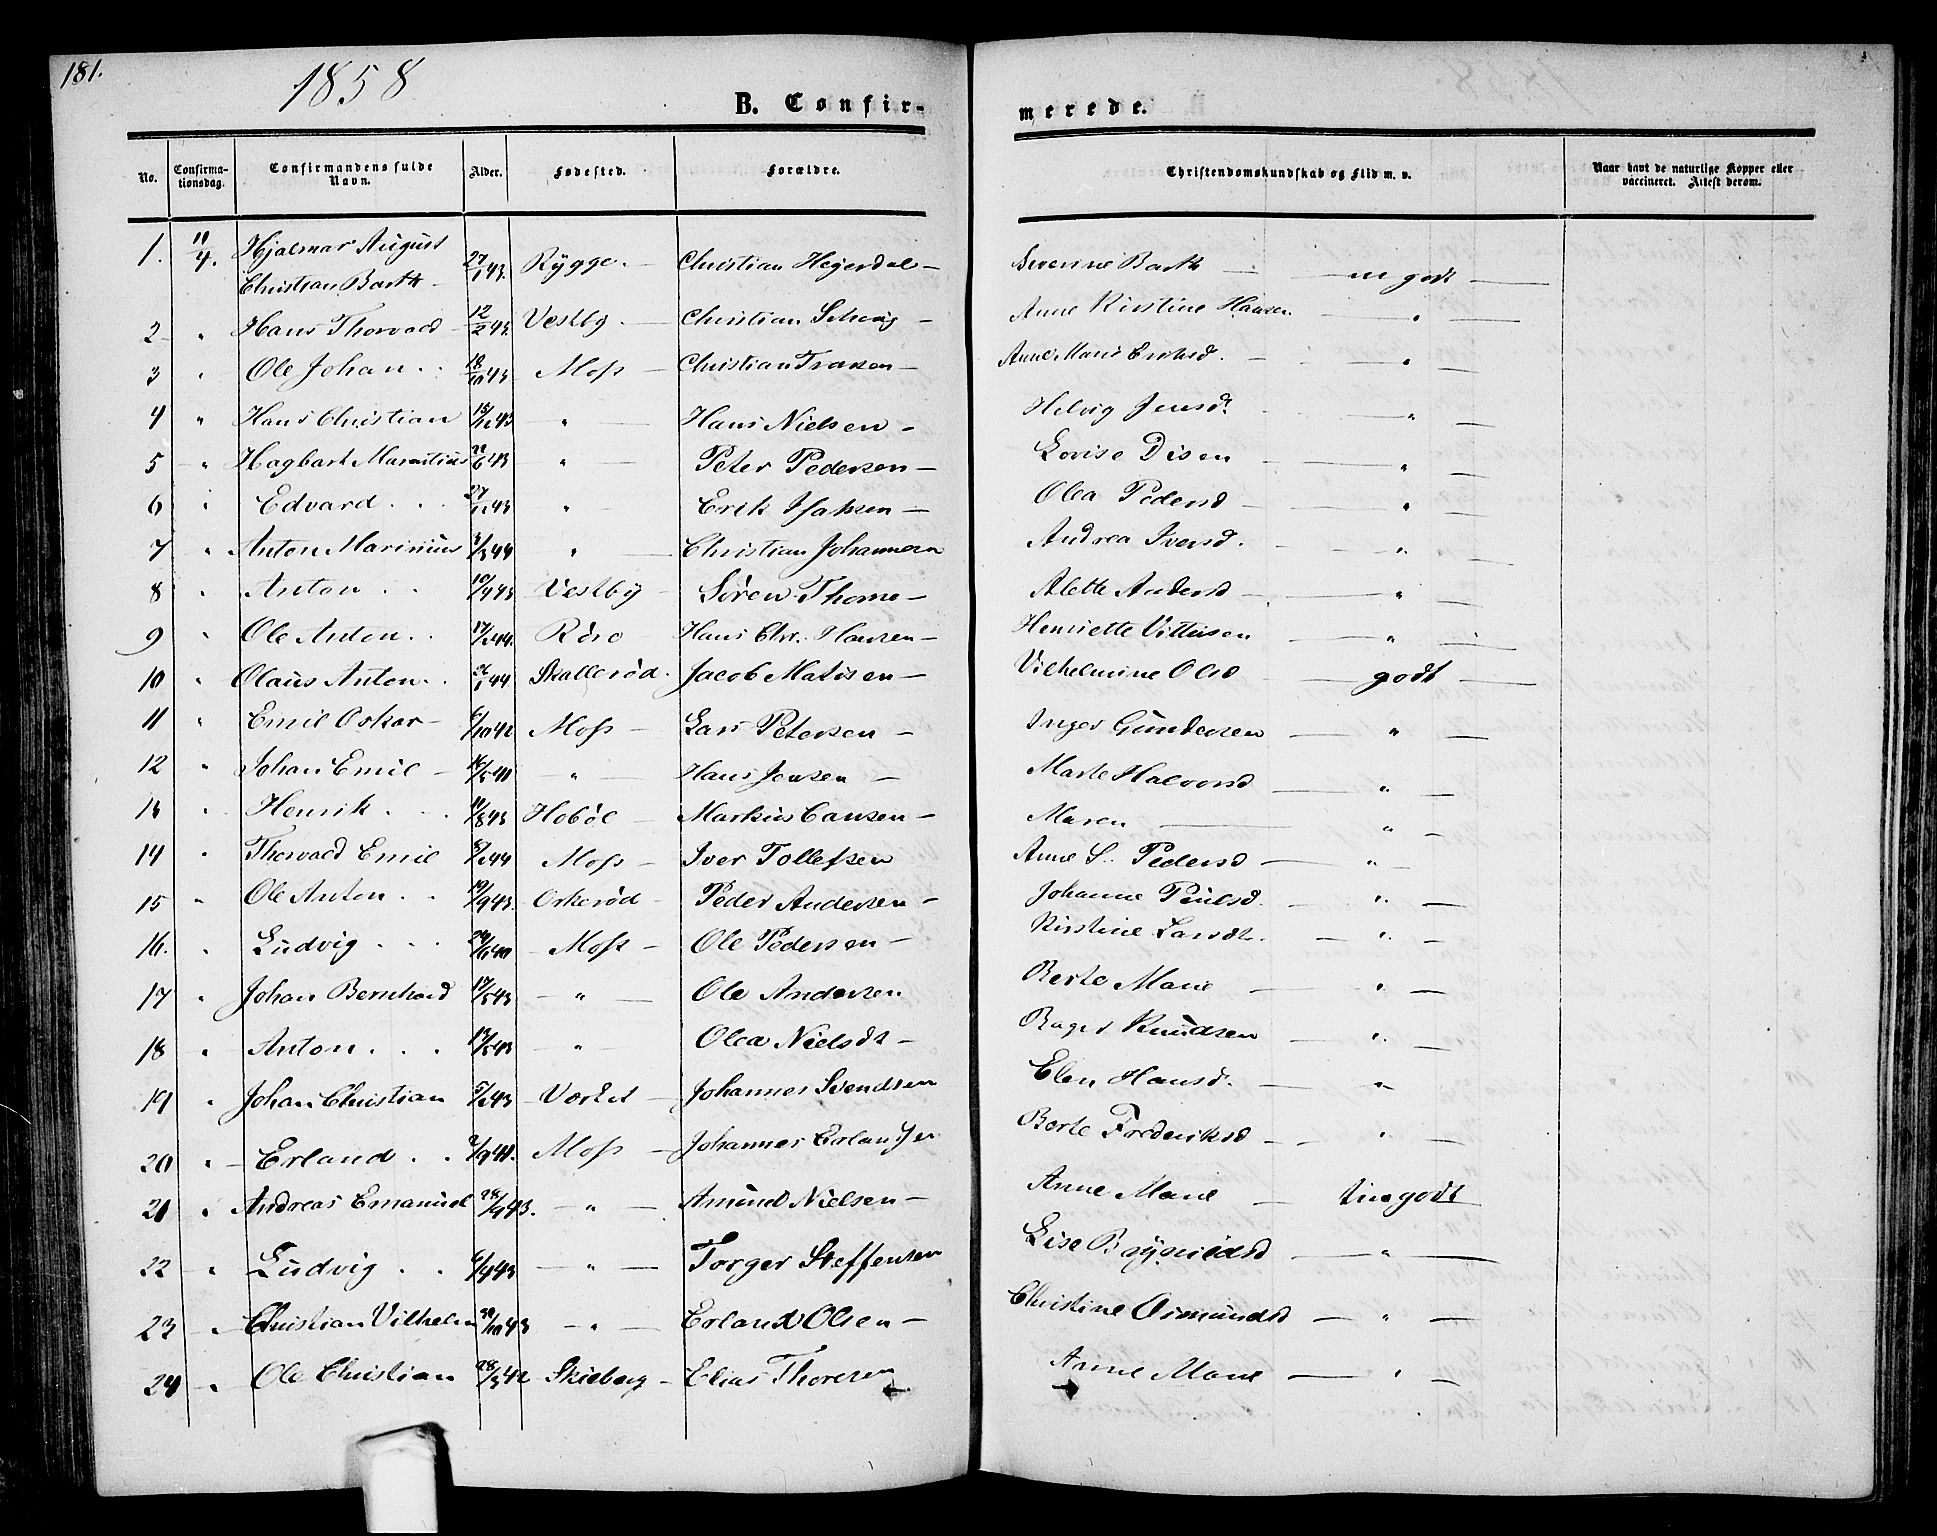 181.
1858
B. Confirmerede.
No. Confirmationsdag. Confirmandens fulde Navn. Alder. Fødested. Forældre. Christendomskundskab og Flid m. v. Naar havt de naturlige Kopper eller vaccineret. Attest derom.
1. 11/4. Hjalmar August
Christian Barth 27/1 43. Rygge. Christian Hejerdal Severine Barth m godt
2 " Hans Thorvald 12/2 43. Vestby. Christian Anne Kirstine Hansen "
3 " Ole Johan 18/10 43 Moss Christian Fransen Anne Marie "
4 " Hans Christian 43 " Hans Nielsen Helvig Jensd. "
5 " Hagbart 43 " Peter Pedersen Lovise Disen "
6 " Edvard 43 " Erik Isaksen Olea Pedersd "
7 " Anton Marinius 44 " Christian Johannesen Andrea Iversd. "
8 " Anton 10/9 43 Vestby Søren Thorne Alette Andersd "
9 " Ole Anton 17/2 44. Hans Chr. Hansen Henriette "
10 " Olaus Anton 26/1 44 Skallerød. Jacob Matisen Vilhelmine Olsd godt
11 " Emil Oskar 6/10 42 Moss Lars Petersen Inger Gundersen "
12 " Johan Emil 16/5 41 " Hans Jensen Marte Halvorsd "
13 " Henrik 11/8 43 Hobøl Markus Maren "
14 " Thorvald Emil 44 Moss Iver Tollefsen Anne S. Pedersd "
15 " Ole Anton 19/9 43. Orkerød Peder Andersen Johanne Paulsd. "
16. " Ludvig Moss Ole Pedersen Kirstine Larsdt. "
17 " Johan Bernhard 17/5 43 " Ole Andersen Berte Marie "
18 " Anton 43 " Olea Nielsdt Knudsen "
19 " Johan Christian 43 Johannes Svendsen Elen Hansd. "
20 " Erland Moss Johannes Erlandsen Berte Frederiksd "
21 " Andreas Emanuel 43. " Amund Nielsen Anne Marie godt
22 " Ludvig 6/9 43 " Torger Steffensen Lise "
23 " Christian Vilhelm 43 " Erland Olsen Christine Osmundsd "
24 " Ole Christian 28/3 42 Skieberg Elias Thoresen Anne Marie "